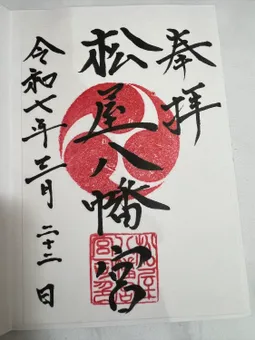 奉拝
松屋八幡宮
令和七年三月二十二日